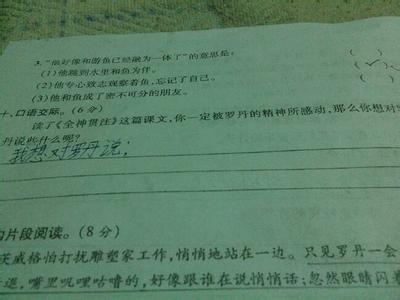 3."他好像和游鱼已经融为一体了"的意思是:
(1)他跳到水里和鱼为伴。 ( )
(2)他专心致志观察着鱼,忘记了自己。 (✓)
(3)他和鱼成了密不可分的朋友。 ( )
十、口语交际。(6分)
读了《全神贯注》这篇课文,你一定被罗丹的精神所感动,那么你想对
丹说些什么呢?
我想对罗丹说:
片段阅读。(8分)
茨威格怕打扰雕塑家工作,悄悄地站在一边。只见罗丹一会
退,嘴里叽哩咕噜的,好像跟谁在说悄悄话;忽然眼睛闪着